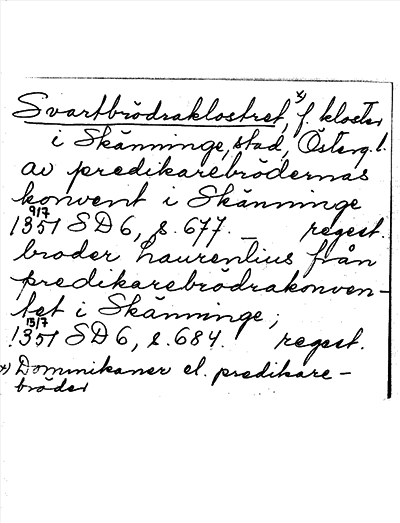 Svartbrödraklostret,ˣ⁾ f. kloster
i Skänninge, stad, Österg. l.
av predikarebrödernas
konvent i Skänninge
9/7
1351 SD 6, s. 677. – regest.
broder Laurentius från
predikarebrödrakonven-
tet i Skänninge;
13/7
1351 SD 6, s. 684. regest.
x) Dominikaner el. predikare-
bröder